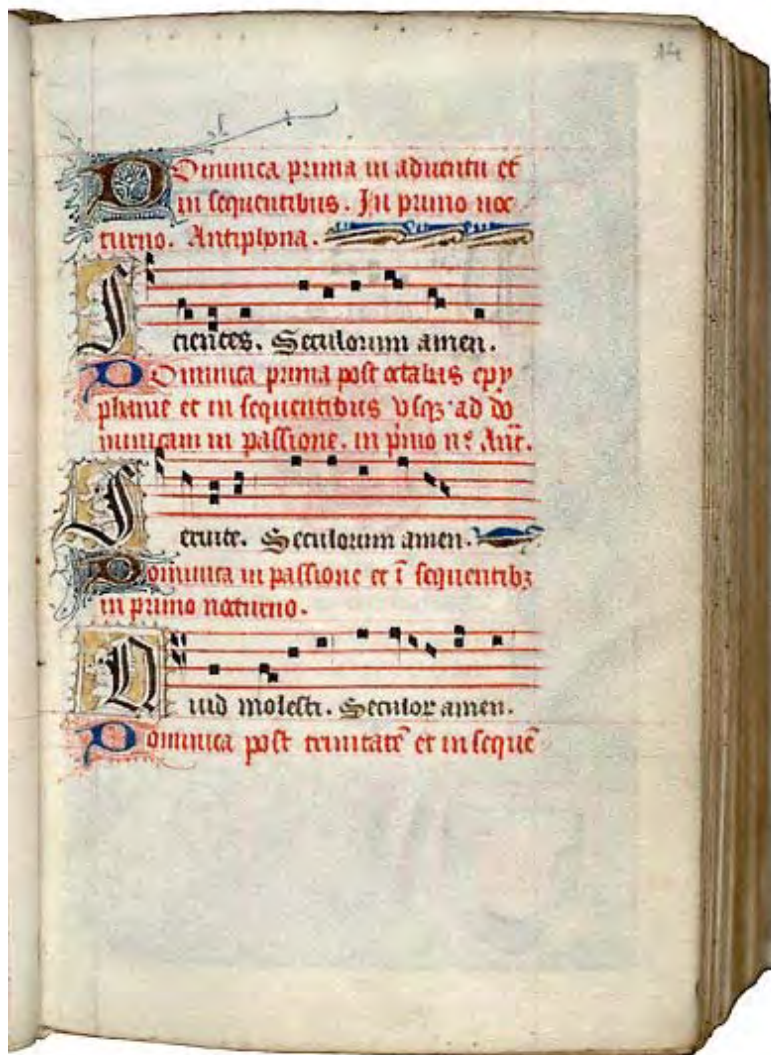 14
Dominica prima in aduentu et
in sequentibus. In primo noc
turno. Antiphona.
Scientes. Seculorum amen.
Dominica prima post octabas epy
phanie et in sequentibus vsqꝫ ad do
minicam in passione. in p̄mo nº. Añt.
Seruite. Seculorum amen.
Dominica in passione et ī sequentibꝫ
in primo nocturno.
Quid molesti. Seculoꝝ amen.
Dominica post trinitatē et in sequē